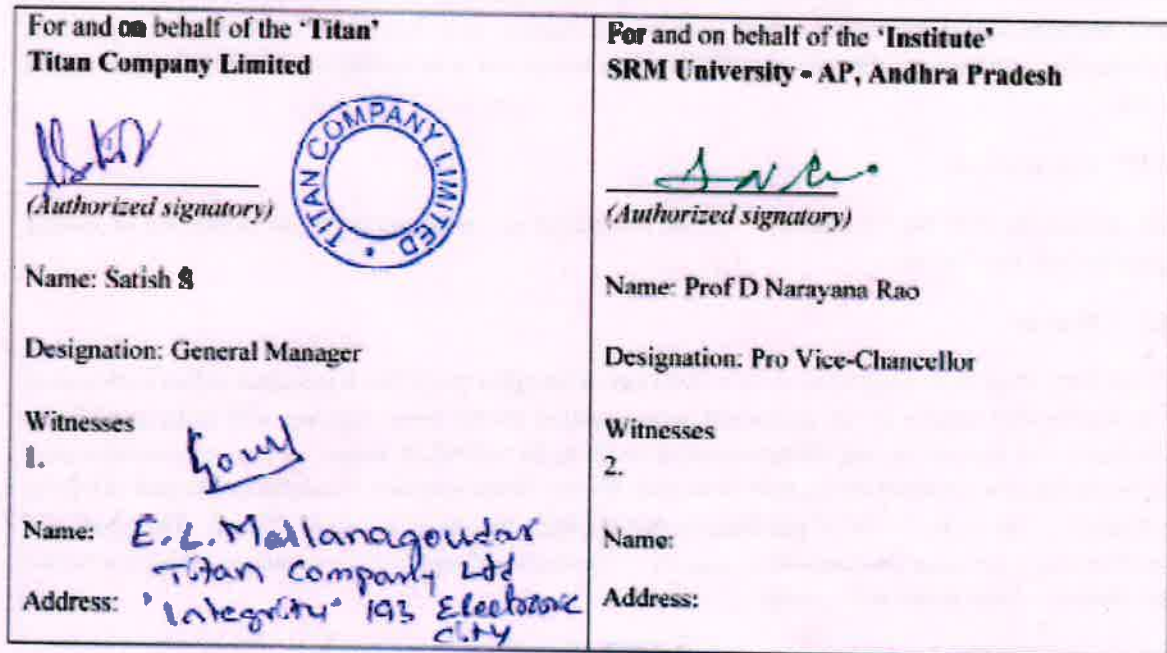 For and on behalf of the 'Titan'
Titan Company Limited
TITAN COMPANY LIMITED
(Authorized signatory)
Name: Satish S
Designation: General Manager
Witnesses
1.
Name: E.L. Mallanagoudar
Titan Company Ltd
Address: 'Integrity' 193 Electronic
City
For and on behalf of the 'Institute'
SRM University - AP, Andhra Pradesh
(Authorized signatory)
Name: Prof D Narayana Rao
Designation: Pro Vice-Chancellor
Witnesses
2.
Name:
Address: